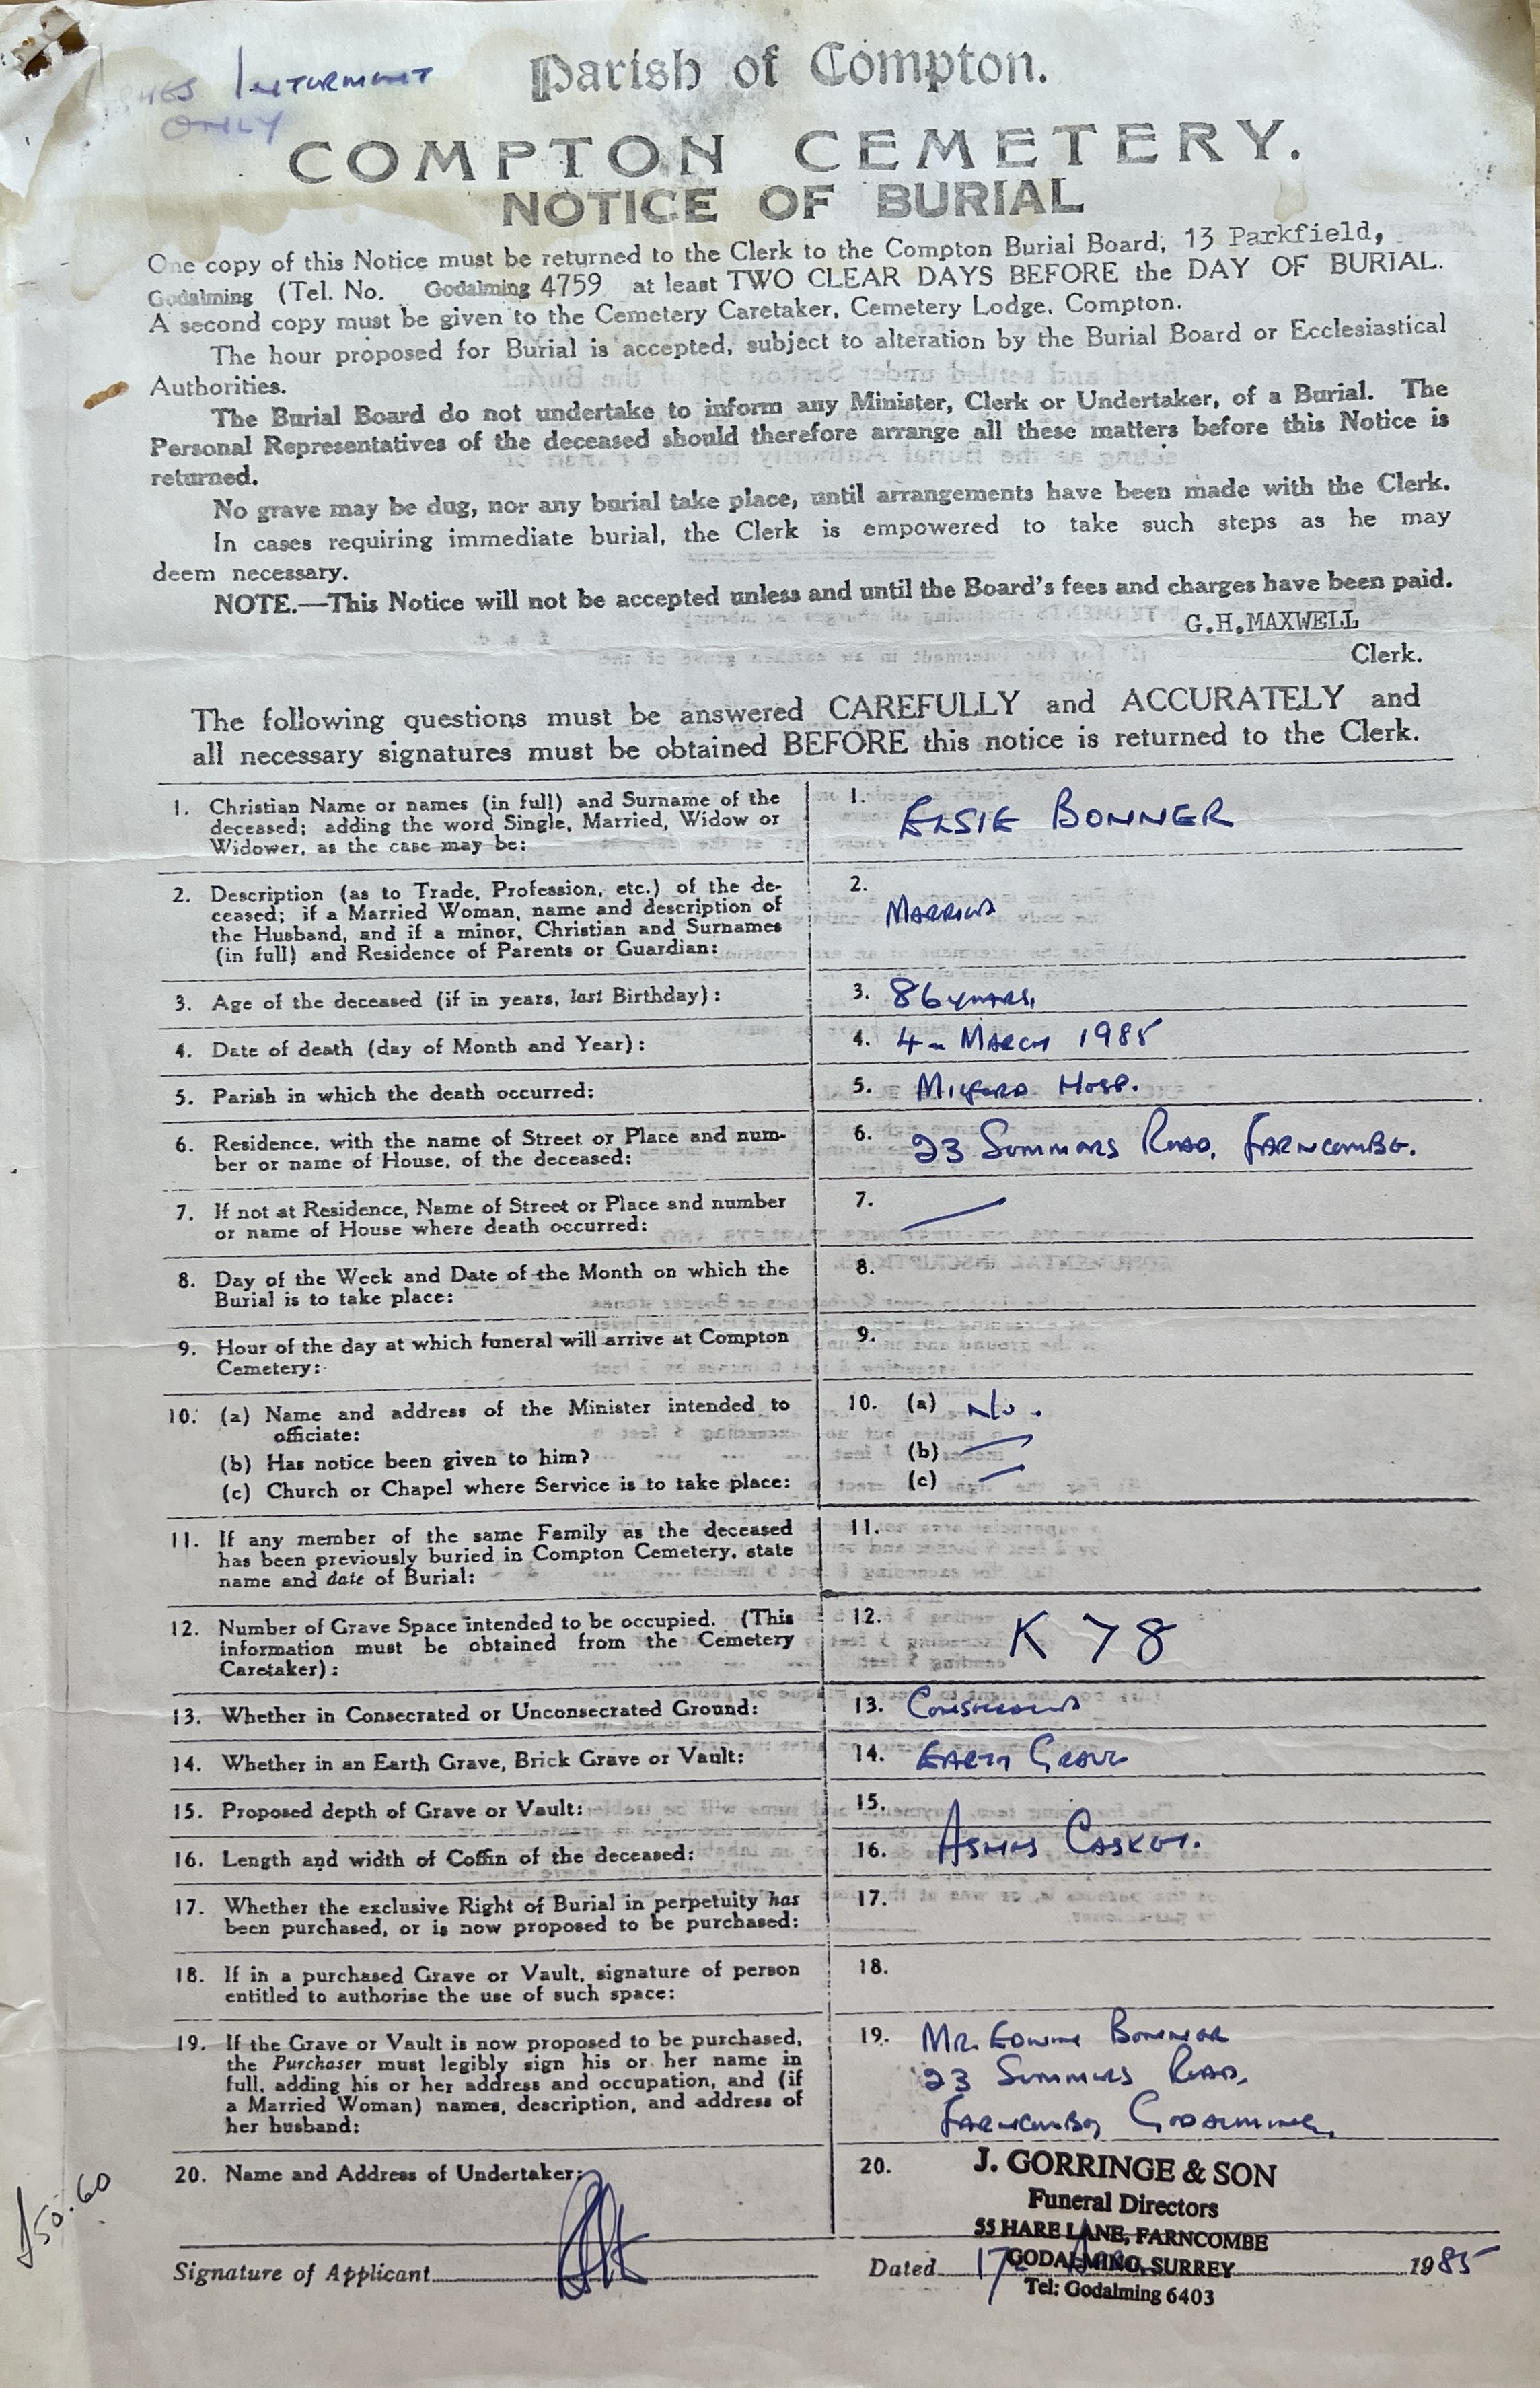 INTERMENT
ONLY
Parish of Compton.
COMPTON CEMETERY.
NOTICE OF BURIAL
One copy of this Notice must be returned to the Clerk to the Compton Burial Board, 13 Parkfield,
Godalming (Tel. No. Godalming 4759 at least TWO CLEAR DAYS BEFORE the DAY OF BURIAL.
A second copy must be given to the Cemetery Caretaker, Cemetery Lodge, Compton.
The hour proposed for Burial is accepted, subject to alteration by the Burial Board or Ecclesiastical
Authorities.
The Burial Board do not undertake to inform any Minister, Clerk or Undertaker, of a Burial. The
Personal Representatives of the deceased should therefore arrange all these matters before this Notice is
returned.
No grave may be dug, nor any burial take place, until arrangements have been made with the Clerk.
In cases requiring immediate burial, the Clerk is empowered to take such steps as he may
deem necessary.
NOTE.—This Notice will not be accepted unless and until the Board's fees and charges have been paid.
G.H.MAXWELL
Clerk.
The following questions must be answered CAREFULLY and ACCURATELY and
all necessary signatures must be obtained BEFORE this notice is returned to the Clerk.
1. Christian Name or names (in full) and Surname of the
deceased; adding the word Single, Married, Widow or
Widower, as the case may be:
1. ELSIE BONNER
2. Description (as to Trade, Profession, etc.) of the de-
ceased; if a Married Woman, name and description of
the Husband, and if a minor, Christian and Surnames
(in full) and Residence of Parents or Guardian:
2. MARRIED
3. Age of the deceased (if in years, last Birthday):
3. 86 YEARS.
4. Date of death (day of Month and Year):
4. 4 - MARCH 1985
5. Parish in which the death occurred:
5. MILFORD HOSP.
6. Residence, with the name of Street or Place and num-
ber or name of House, of the deceased:
6. 23 SUMMERS ROAD, FARNCOMBE.
7. If not at Residence, Name of Street or Place and number
or name of House where death occurred:
7.
8. Day of the Week and Date of the Month on which the
Burial is to take place:
8.
9. Hour of the day at which funeral will arrive at Compton
Cemetery:
9.
10. (a) Name and address of the Minister intended to
officiate:
(b) Has notice been given to him?
(c) Church or Chapel where Service is to take place:
10. (a) No.
(b)
(c)
11. If any member of the same Family as the deceased
has been previously buried in Compton Cemetery, state
name and date of Burial:
11.
12. Number of Grave Space intended to be occupied. (This
information must be obtained from the Cemetery
Caretaker):
12. K 78
13. Whether in Consecrated or Unconsecrated Ground:
13. CONSECRATED
14. Whether in an Earth Grave, Brick Grave or Vault:
14. EARTH GRAVE
15. Proposed depth of Grave or Vault:
15.
16. Length and width of Coffin of the deceased:
16. ASHES CASKET.
17. Whether the exclusive Right of Burial in perpetuity has
been purchased, or is now proposed to be purchased:
17.
18. If in a purchased Grave or Vault, signature of person
entitled to authorise the use of such space:
18.
19. If the Grave or Vault is now proposed to be purchased,
the Purchaser must legibly sign his or her name in
full, adding his or her address and occupation, and (if
a Married Woman) names, description, and address of
her husband:
19. MR. EDWIN BONNER
23 SUMMERS ROAD,
FARNCOMBE, GODALMING,
20. Name and Address of Undertaker:
20. J. GORRINGE & SON
Funeral Directors
55 HARE LANE, FARNCOMBE
GODALMING, SURREY
Tel: Godalming 6403
£50.60
Signature of Applicant
Dated 17 1985